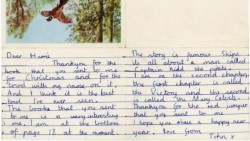 Dear Mami
Thankyou for the
book that you sent to me
for Christmas and for the
towel with my name on it.
And I think it is the best
towl I've ever seen.
The book that you sent
to me is a very interesting
one, I am at the bottom
of page 18 at the moment.
The story is famous Ships
it is all about a man called
Captain Kidd the pirate.
I am on the second chapter,
the first chapter is called
the Victory and the second
is called the Mary Celeste.
Thankyou for the red jumper
that you sent to me.
I hope you have a happy new
year, love from
John x